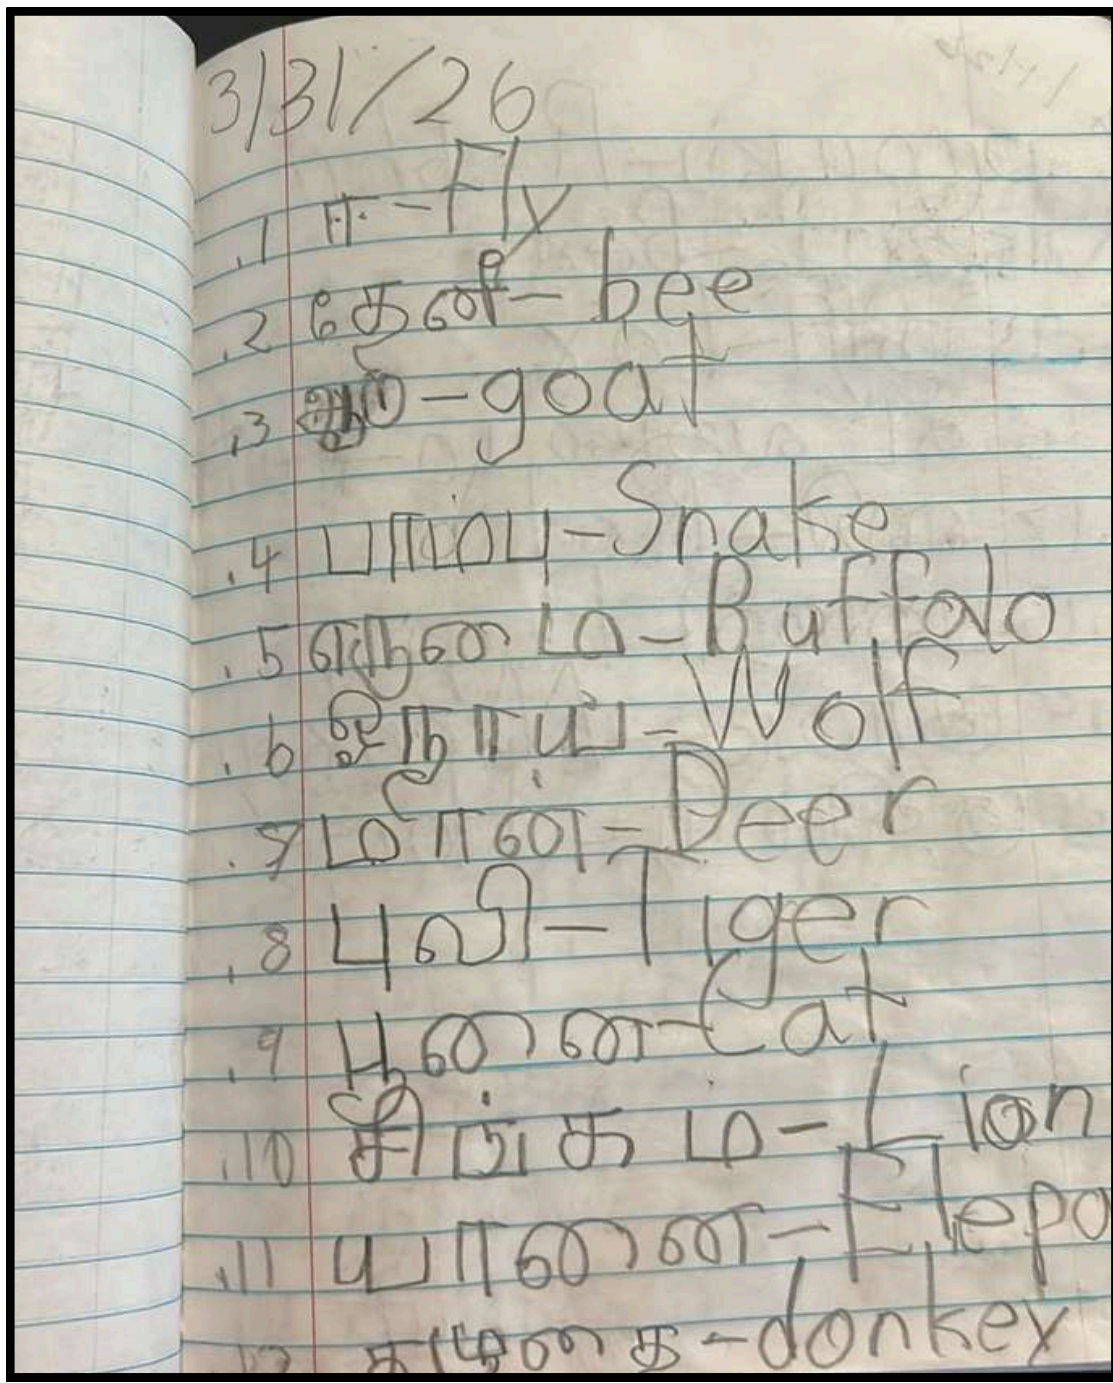 3/31/26
.1 ஈ - Fly
.2 தேனீ - bee
.3 - goat
.4 பாம்பு - Snake
.5 எருமை மா - Buffalo
.6 ஓநாய் - Wolf
.7 மான் - Deer
.8 புலி - Tiger
.9 பூனை - Cat
.10 சிங்கம் - Lion
.11 யானை - Elepa
கழுதை - donkey